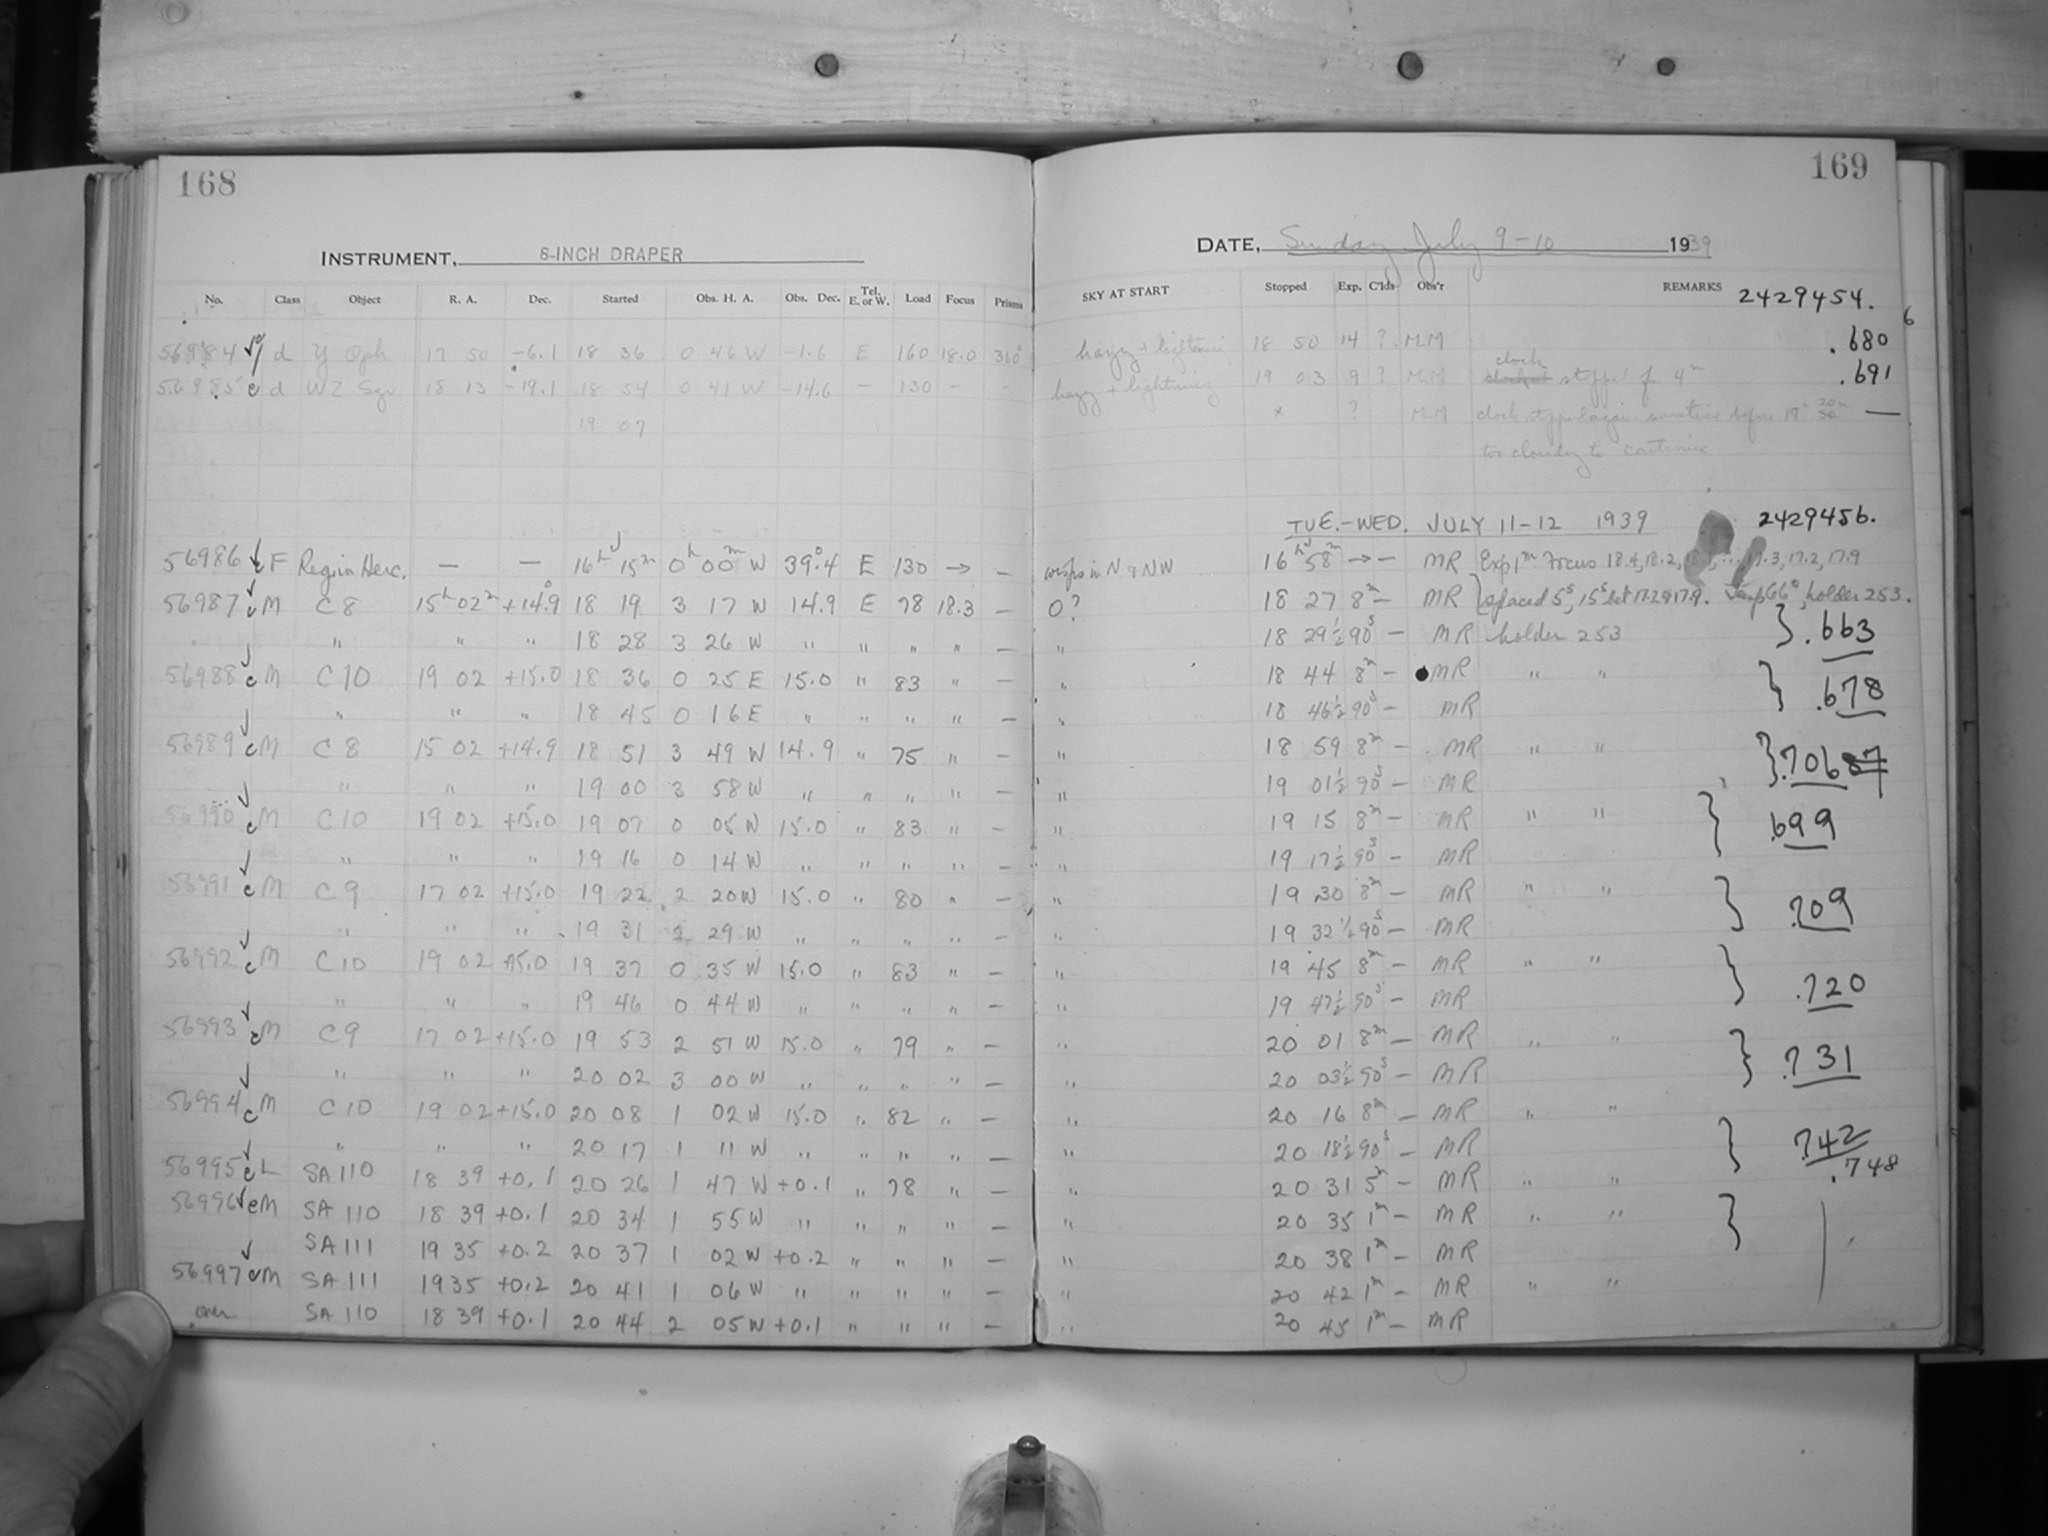 168
INSTRUMENT, 8-INCH DRAPER
No. Class Object R. A. Dec. Started Obs. H. A. Obs. Dec. Tel. E. or W. Load Focus Prisms
56984 d Y Oph 17 50 -6.1 18 36 0 46 W -1.6 E 160 18.0 360°
56985 c d WZ Sgr 18 13 -19.1 18 54 0 41 W -14.6 - 130 - -
19 07
56986 F Region Herc. — — 16h 15m 0h 00m W 39°.4 E 130 → -
56987 c M C8 15h 02m +14.9 18 19 3 17 W 14.9 E 78 18.3 -
" " " 18 28 3 26 W " " " " -
56988 c M C10 19 02 +15.0 18 36 0 25 E 15.0 " 83 " -
" " " 18 45 0 16 E " " " " -
56989 c M C8 15 02 +14.9 18 51 3 49 W 14.9 " 75 " -
" " " 19 00 3 58 W " " " " -
56990 c M C10 19 02 +15.0 19 07 0 05 W 15.0 " 83 " -
" " " 19 16 0 14 W " " " " -
56991 c M C9 17 02 +15.0 19 22 2 20 W 15.0 " 80 " -
" " " 19 31 2 29 W " " " " -
56992 c M C10 19 02 +15.0 19 37 0 35 W 15.0 " 83 " -
" " " 19 46 0 44 W " " " " -
56993 c M C9 17 02 +15.0 19 53 2 51 W 15.0 " 79 " -
" " " 20 02 3 00 W " " " " -
56994 c M C10 19 02 +15.0 20 08 1 02 W 15.0 " 82 " -
" " " 20 17 1 11 W " " " " -
56995 c L SA 110 18 39 +0.1 20 26 1 47 W +0.1 " 78 " -
56996 c M SA 110 18 39 +0.1 20 34 1 55 W " " " " -
SA 111 19 35 +0.2 20 37 1 02 W +0.2 " " " -
56997 c M SA 111 19 35 +0.2 20 41 1 06 W " " " " -
over SA 110 18 39 +0.1 20 44 2 05 W +0.1 " " " -
169
DATE, Sunday July 9-10 1939
SKY AT START Stopped Exp. C'lds Obs'r REMARKS 2429454.
hazy + lightning 18 50 14 ? MM .680
hazy + lightning 19 03 9 ? MM clock stopped for 4m .691
x ? MM clock stopped again sometime before 19h 20m —
too cloudy to continue
TUE.-WED. JULY 11-12 1939 2429456.
wisps in N & NW 16h 58m → - MR Exp 1m Focus 18.4, 18.2, 17.3, 17.2, 17.9
0? 18 27 8m - MR spaced 5s, 15s bet 17.2 & 17.9. Temp 66°, holder 253.
" 18 29½ 90s - MR holder 253 .663
" 18 44 8m - MR " "
" 18 46½ 90s - MR .678
" 18 59 8m - MR " " .706
" 19 01½ 90s - MR
" 19 15 8m - MR " " .699
" 19 17½ 90s - MR
" 19 30 8m - MR " " .709
" 19 32½ 90s - MR
" 19 45 8m - MR " " .720
" 19 47½ 90s - MR
" 20 01 8m - MR " " .731
" 20 03½ 90s - MR
" 20 16 8m - MR " "
" 20 18½ 90s - MR .742
" 20 31 5m - MR " " .748
" 20 35 1m - MR " "
" 20 38 1m - MR
" 20 42 1m - MR " "
" 20 45 1m - MR